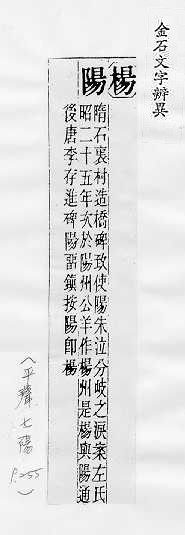 金石文字辨異
楊
陽
隋石裏村造橋碑致使陽朱泣分岐之淚案左氏
昭二十五年次於陽州公羊作楊州是楊與陽通
後唐李存進碑陽噩鎮按陽即楊
(平聲 七陽
P.255)